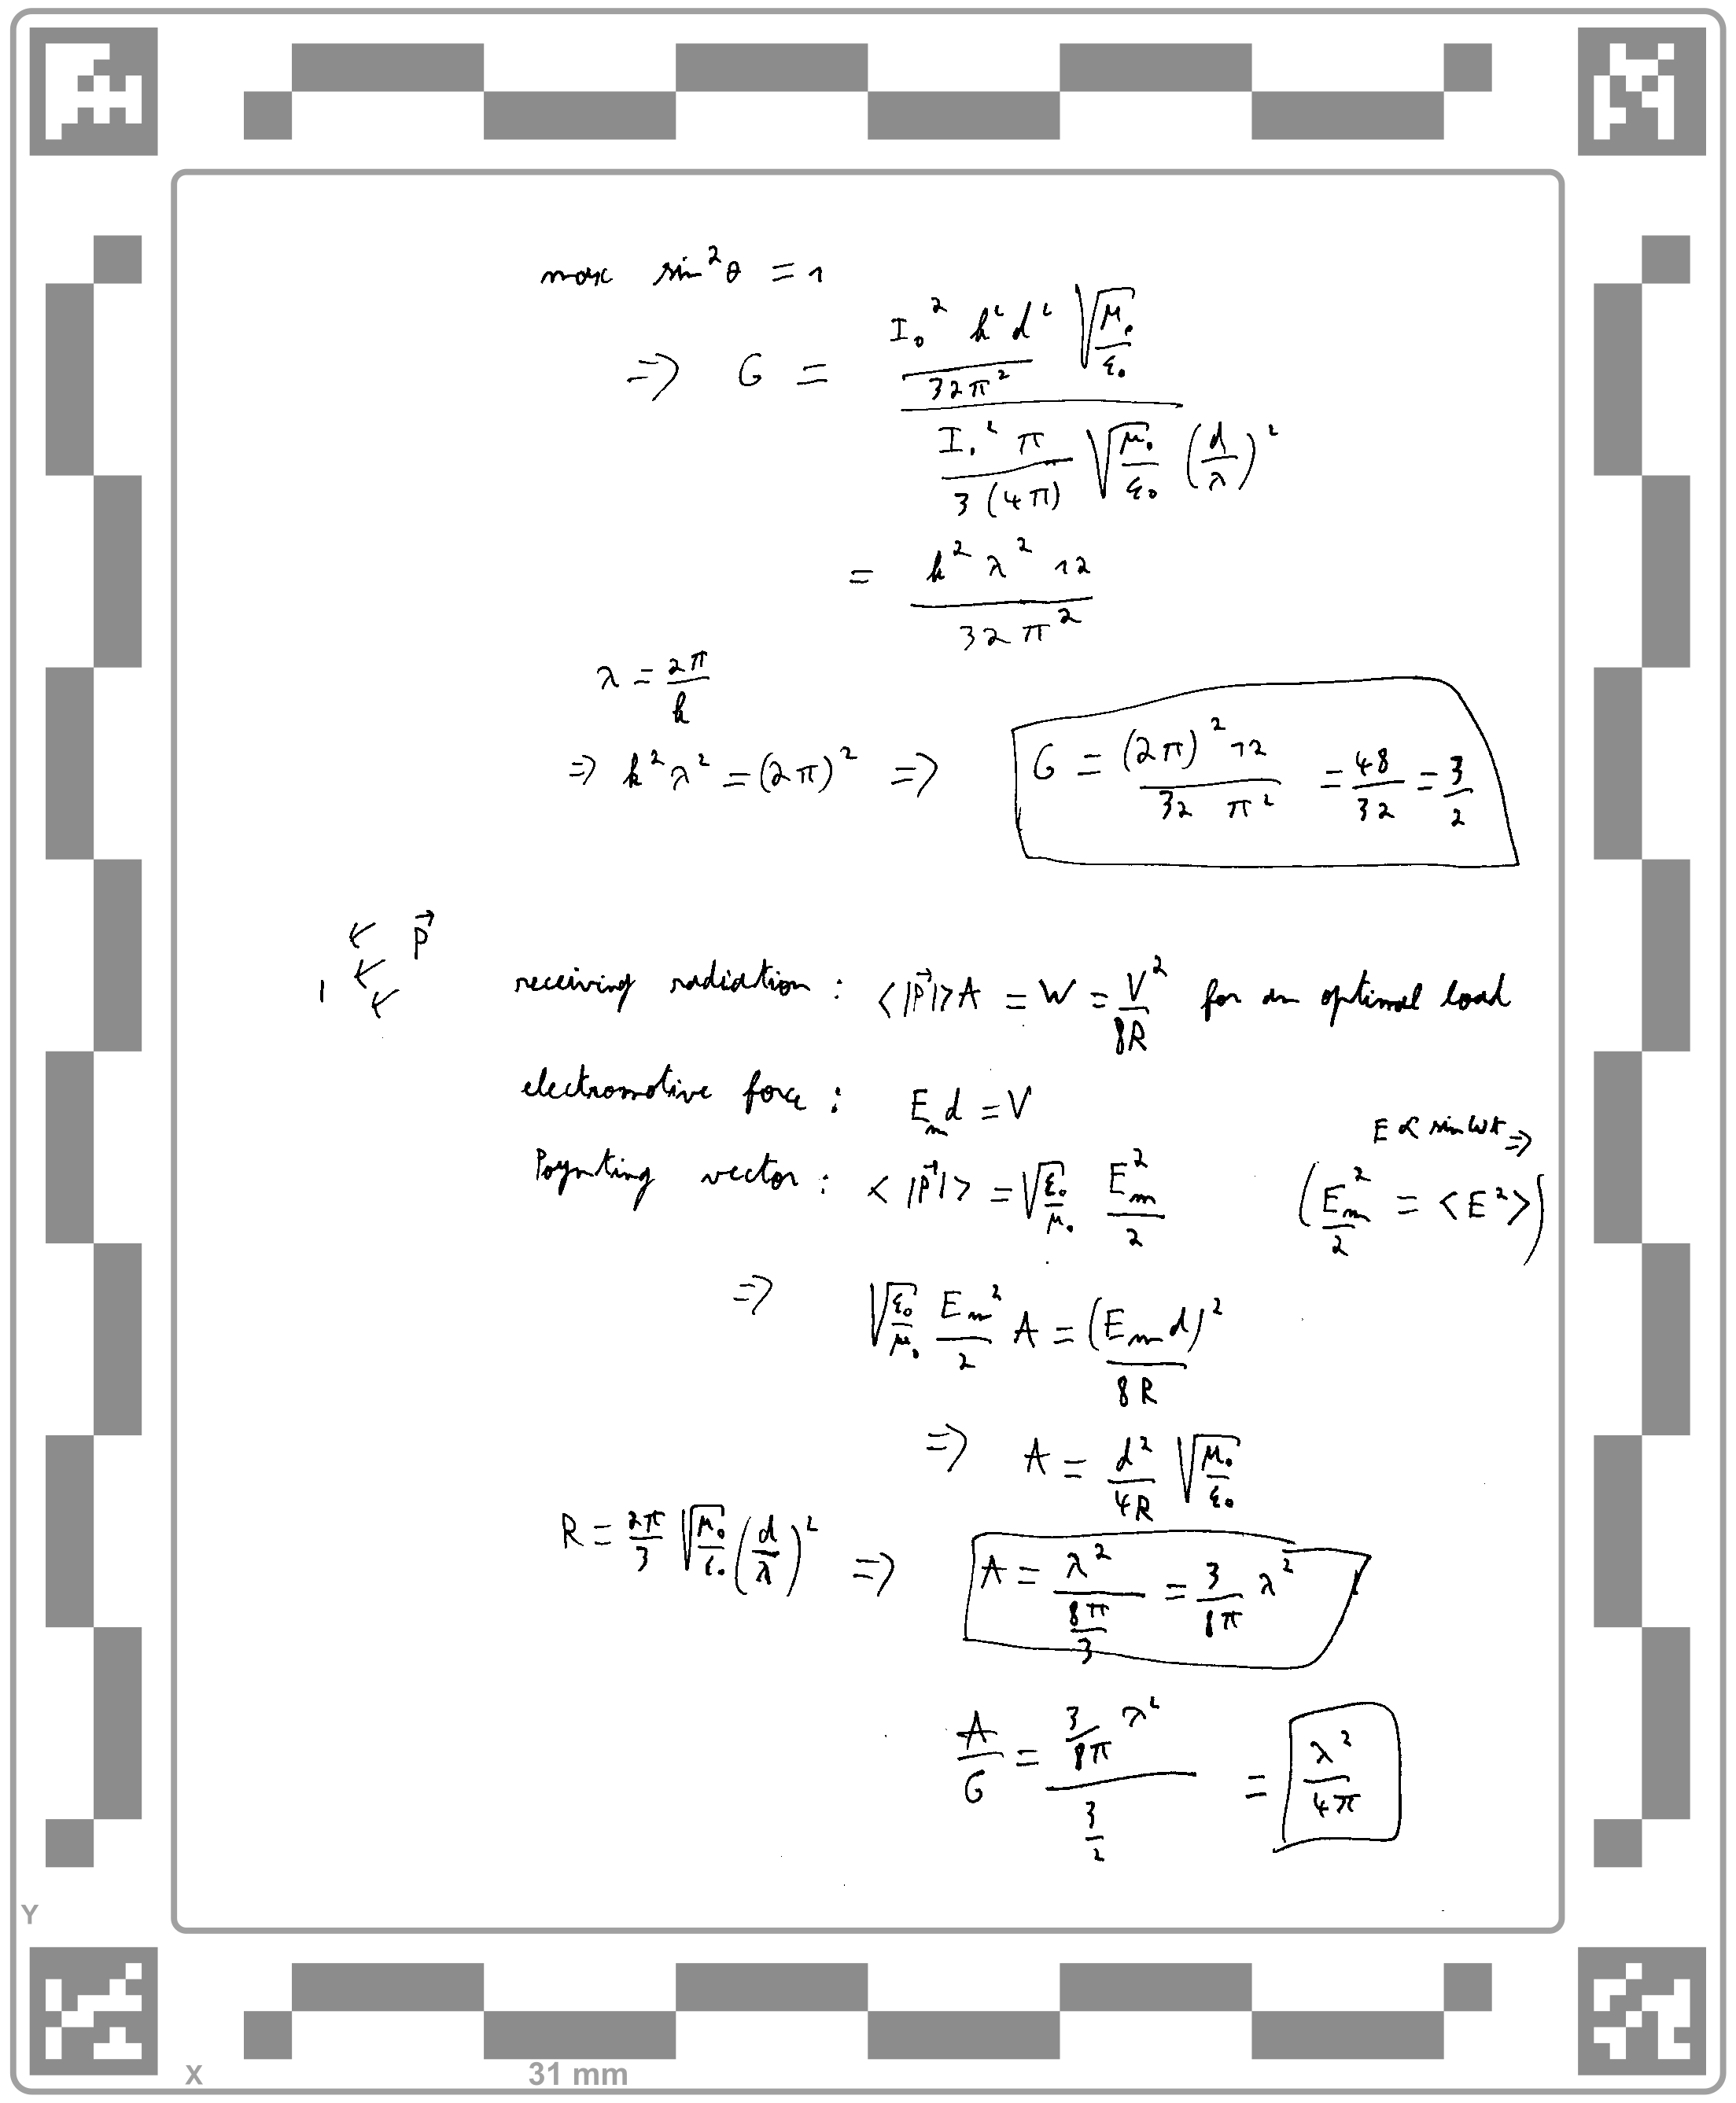 max sin²θ = 1
⇒ G = (I₀² k² d² / 32π² √(μ₀/ε₀)) / (I₀² π / 3(4π) √(μ₀/ε₀) (d/λ)²)
= k² λ² 12 / 32 π²
λ = 2π / k
⇒ k² λ² = (2π)² ⇒ G = (2π)² 12 / 32 π² = 48/32 = 3/2
P⃗
receiving radiation : <|P⃗|> A = W = V²/8R for an optimal load
electromotive force : Eₘ d = V
E ∝ sin ωt ⇒
Poynting vector : <|P⃗|> = √(ε₀/μ₀) Eₘ²/2 (Eₘ²/2 = <E²>)
⇒ √(ε₀/μ₀) Eₘ²/2 A = (Eₘ d)² / 8R
⇒ A = d²/4R √(μ₀/ε₀)
R = 2π/3 √(μ₀/ε₀) (d/λ)² ⇒ A = λ² / (8π/3) = 3/8π λ²
A/G = (3/8π λ²) / (3/2) = λ²/4π
Y
X 31 mm